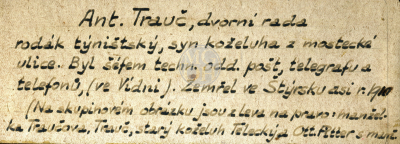 Ant. Trauč, dvorní rada
rodák týništský, syn koželuha z mostecké
ulice. Byl šéfem techn. odd. pošt, telegrafu a
telefonů, (ve Vídni). Zemřel ve Štýrsku asi r.
(Na skupinovém obrázku jsou z leva na pravo: manžel-
ka Traučova, Trauč, starý koželuh Telecký a Ott. Pitter s manž.